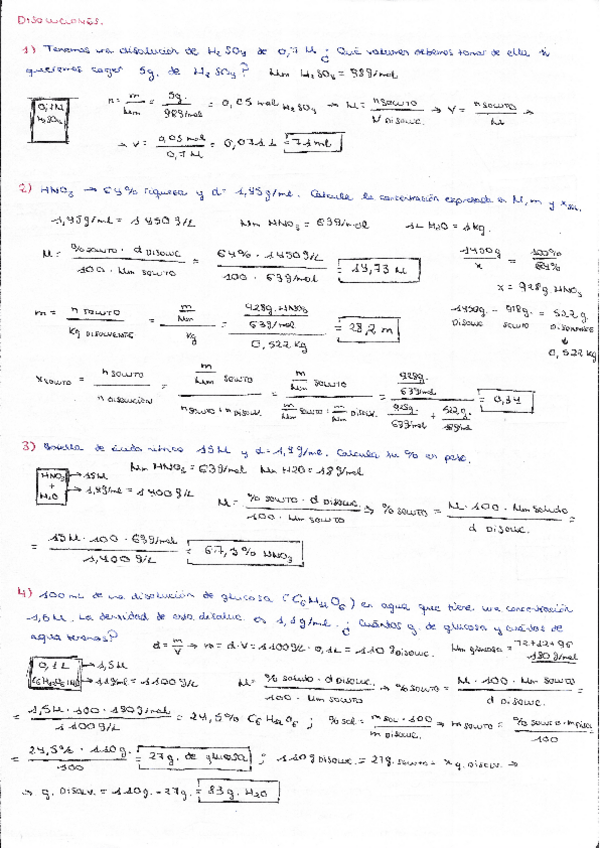 DISOLUCIONES.
1) Tenemos una disolución de H2SO4 de 0,7 M ¿Qué volumen debemos tomar de ella si
queremos coger 5g. de H2SO4? Mm H2SO4 = 98g/mol
0,7M H2SO4
n = m/Mm = 5g./98g/mol = 0,05 mol H2SO4 → M = n SOLUTO/V DISOLUC. → V = n SOLUTO/M →
→ V = 0,05 mol/0,7 M = 0,071 L = 71 ml
2) HNO3 → 64% riqueza y d = 1,45g/ml. Calcula la concentración expresada en M, m y x sol.
1,45g/ml = 1450 g/L Mm HNO3 = 63g/mol 1L H2O = 1kg.
M = % SOLUTO · d DISOLUC/100 · Mm SOLUTO = 64% · 1450g/L/100 · 63g/mol = 14,73 M
1450g/x = 100%/64%
x = 928g HNO3
m = n SOLUTO/Kg DISOLVENTE = m/Mm/Kg = 928g. HNO3/63g/mol/0,522 Kg = 28,2 m
1450g. - 928g. = 522 g.
DISOLUC SOLUTO DISOLVENTE
↓
0,522 Kg
x SOLUTO = n SOLUTO/n DISOLUCIÓN = m/Mm SOLUTO/n SOLUTO + n DISOLV. = m/Mm SOLUTO/m/Mm SOLUTO + m/Mm DISOLV. = 928g./63g/mol/928g./63g/mol + 522g./18g/mol = 0,34
3) Botella de ácido nítrico 15M y d = 1,4g/ml. Calcula su % en peso.
HNO3 + H2O → 15M Mm HNO3 = 63g/mol Mm H2O = 18g/mol
→ 1,4g/ml = 1400g/L
M = % SOLUTO · d DISOLUC./100 · Mm SOLUTO → % SOLUTO = M · 100 · Mm soluto/d DISOLUC. =
= 15M · 100 · 63g/mol/1,400g/L = 67,5% HNO3
4) 100 mL de una disolución de glucosa (C6H12O6) en agua que tiene una concentración
1,5M. La densidad de esta disoluc. es 1,1g/ml. ¿Cuántos g. de glucosa y cuántos de
agua tenemos?
d = m/V → m = d·V = 1100g/L · 0,1L = 110 g DISOLUC. Mm glucosa = 72+12+96
180g/mol
0,1L → 1,5M
→ 1,1g/ml = 1100g/L
M = % soluto · d DISOLUC/100 · Mm SOLUTO → % SOLUTO = M · 100 · Mm SOLUTO/d DISOLUC. =
= 1,5M · 100 · 180g/mol/1100g/L = 24,5% C6H12O6 ; % sol = m sol · 100/m DISOLUC. → m SOLUTO = % SOLUTO · m DISOL/100
= 24,5% · 110g./100 = 27g. de glucosa ; 110g DISOLUC. = 27g. SOLUTO + x g. DISOLV. →
→ g. DISOLV. = 110g. - 27g. = 83g. H2O